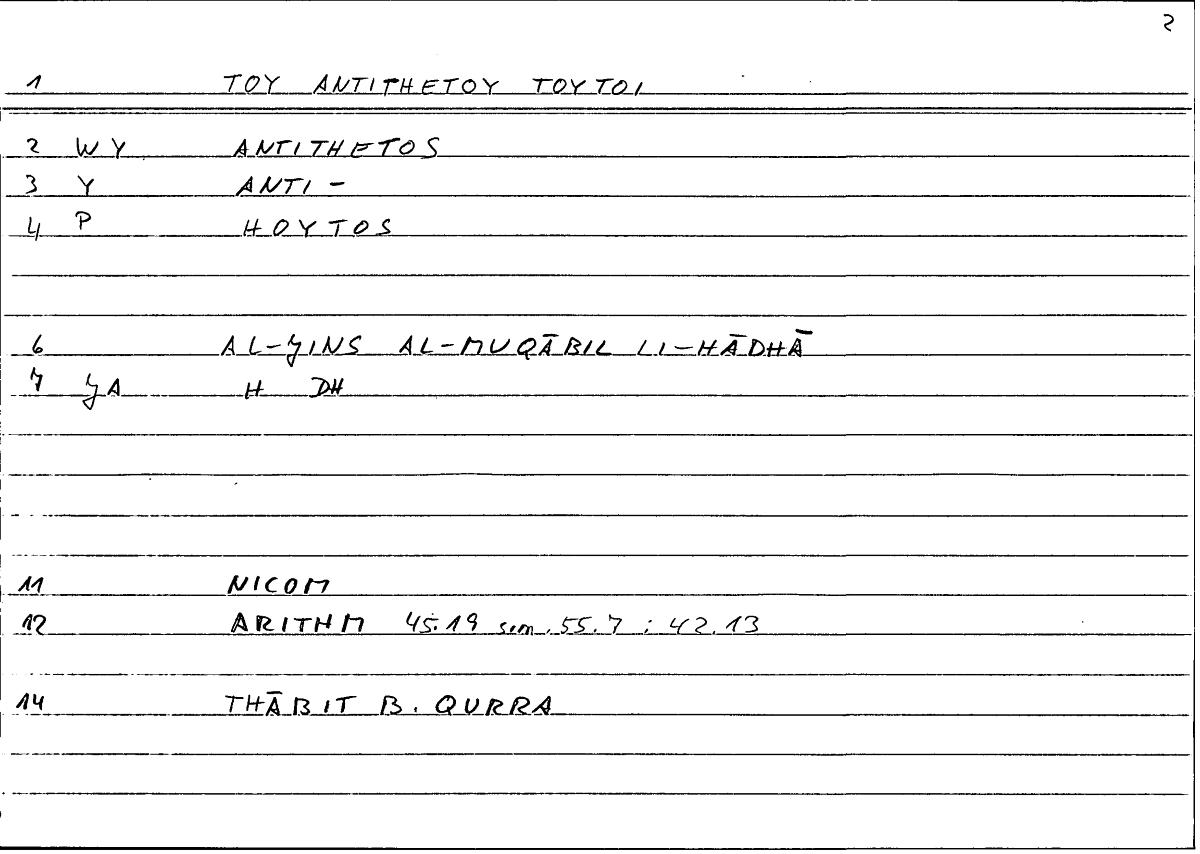 2
1 TOY ANTITHETOY TOYTOI
2 WY ANTITHETOS
3 Y ANTI-
4 P HOYTOS
6 AL-ǦINS AL-MUQĀBIL LI-HĀDHĀ
7 ǦA H DH
11 NICOM
12 ARITHM 45.19 sim. 55.7 : 42.13
14 THĀBIT B. QURRA